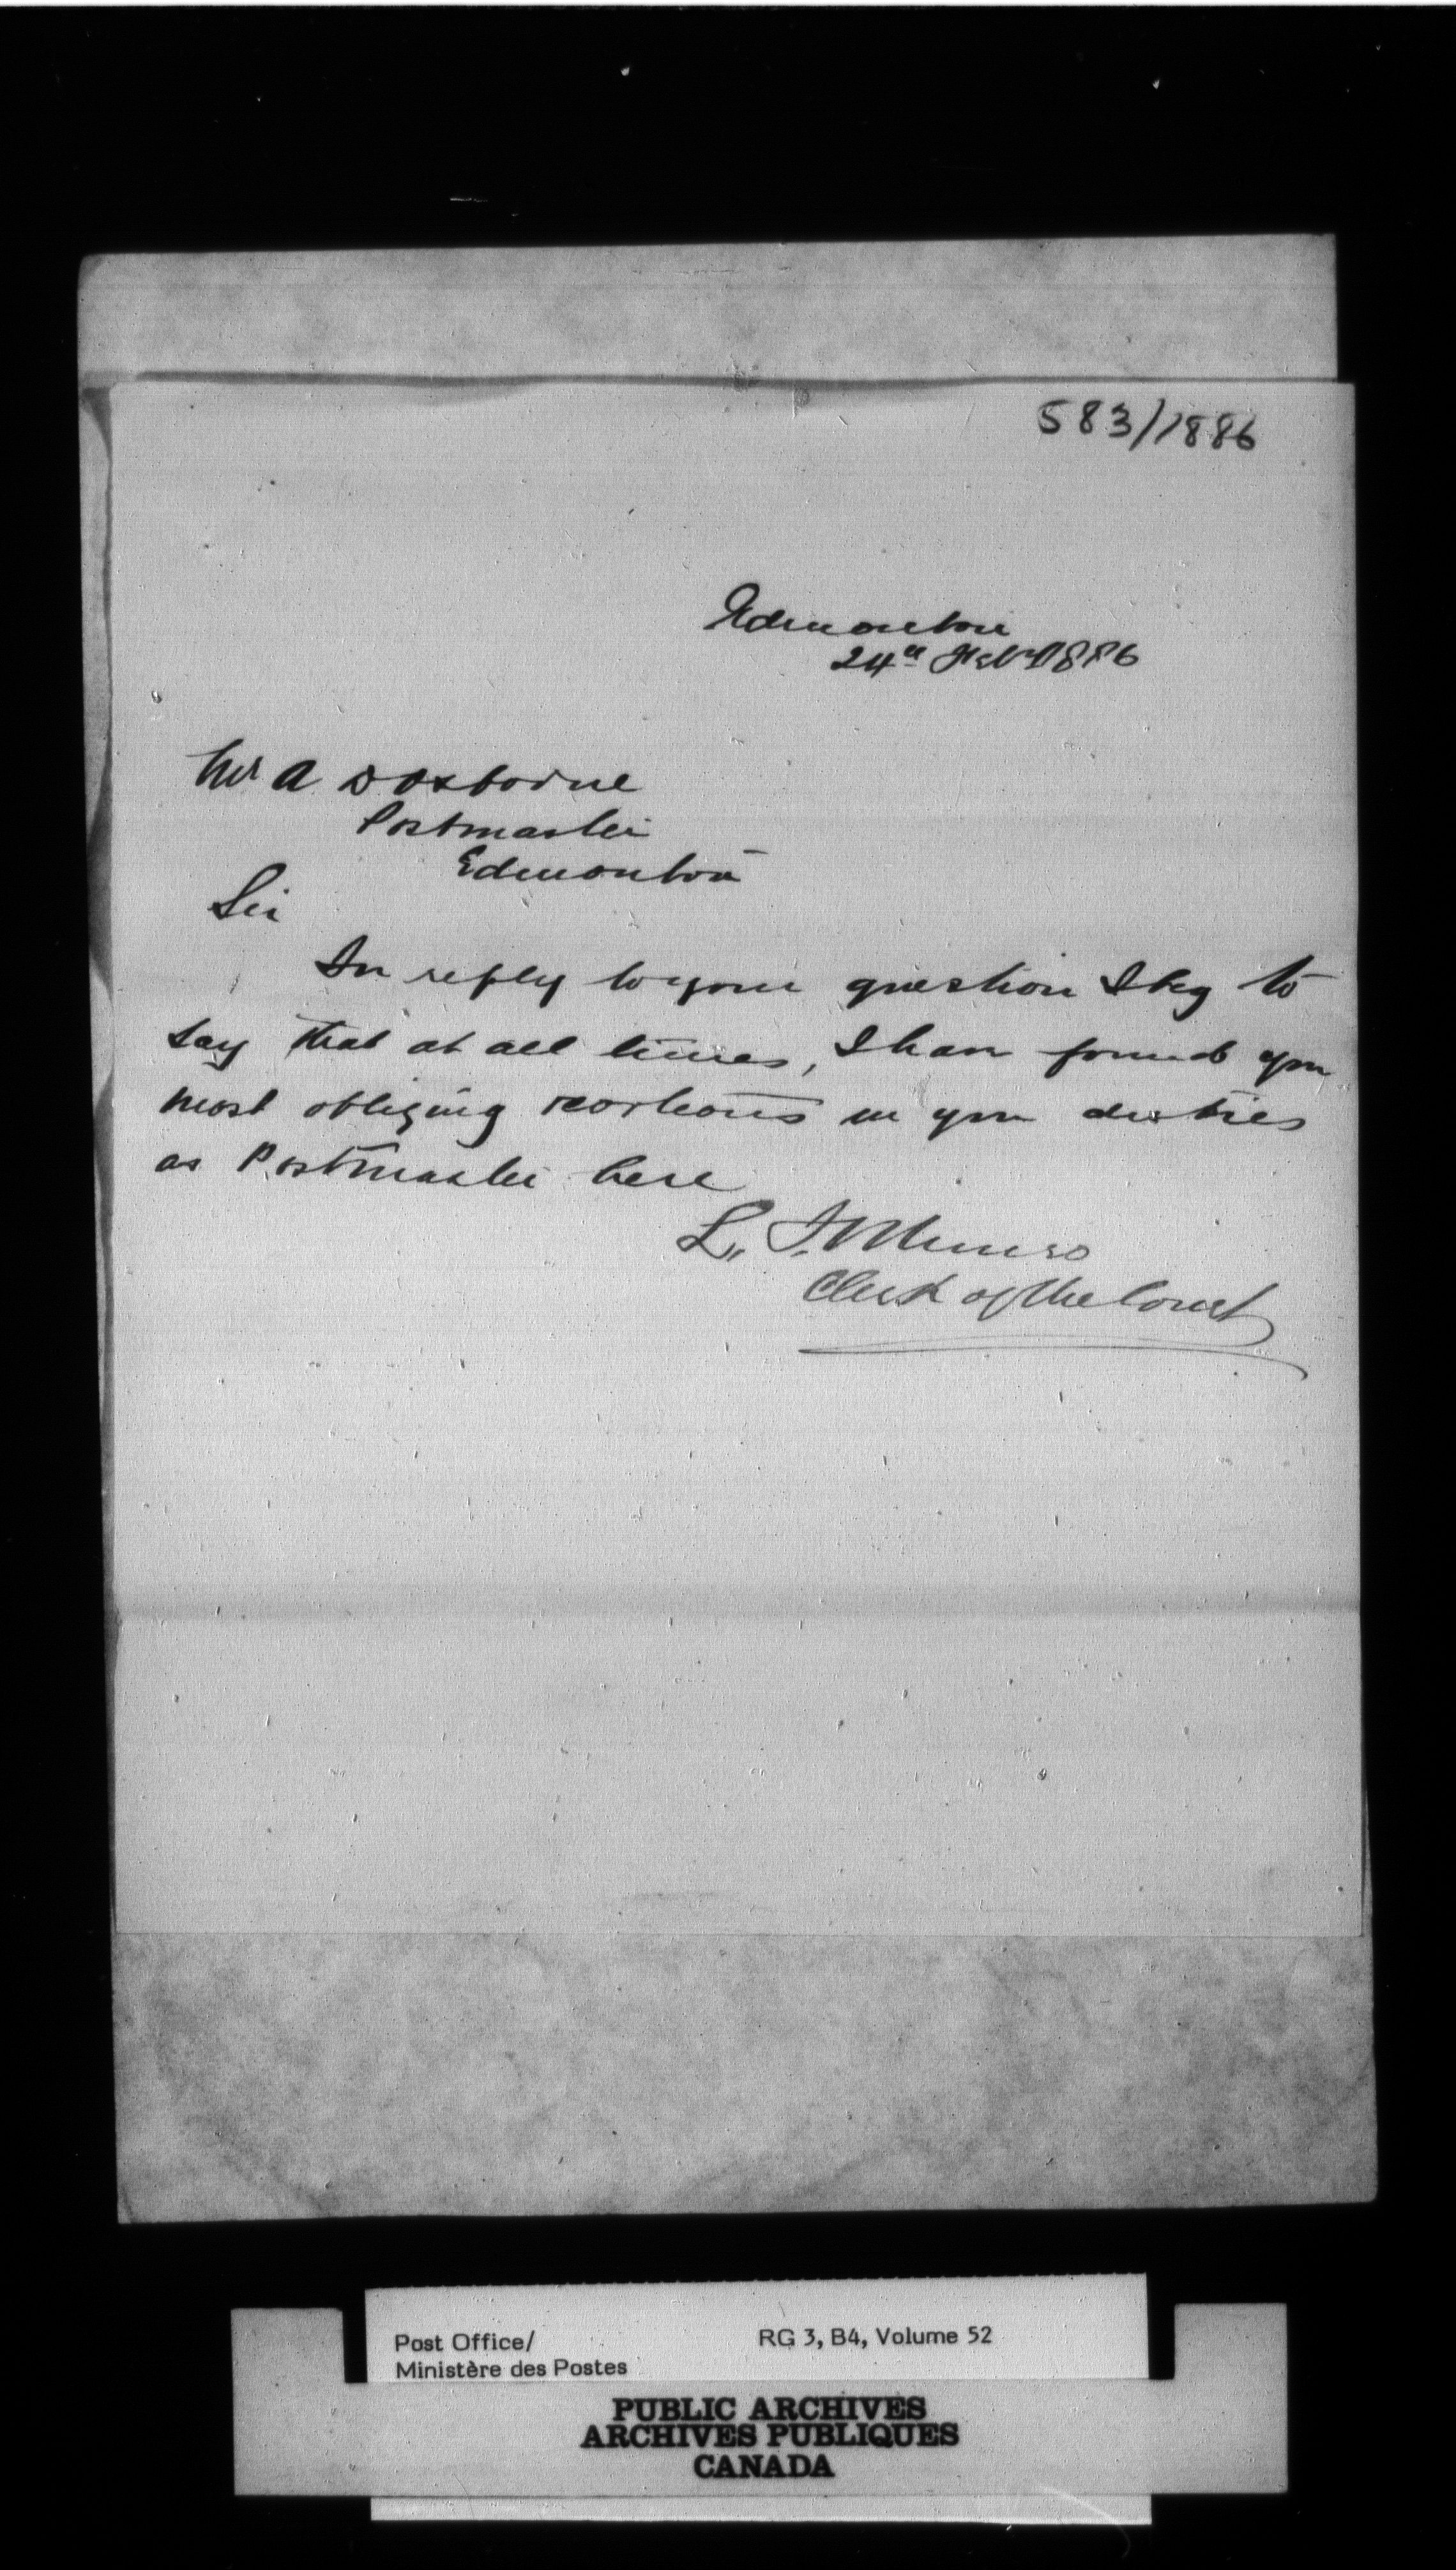 583/1886
Edmonton
24th Feb 1886
Mr A D Osborne
Postmaster
Edmonton
Sir
In reply to your question I beg to
say that at all times, I have found you
most obliging & courteous in your duties
as Postmaster here
L. F. Munro
Clerk of the Court
Post Office/
Ministère des Postes
RG 3, B4, Volume 52
PUBLIC ARCHIVES
ARCHIVES PUBLIQUES
CANADA